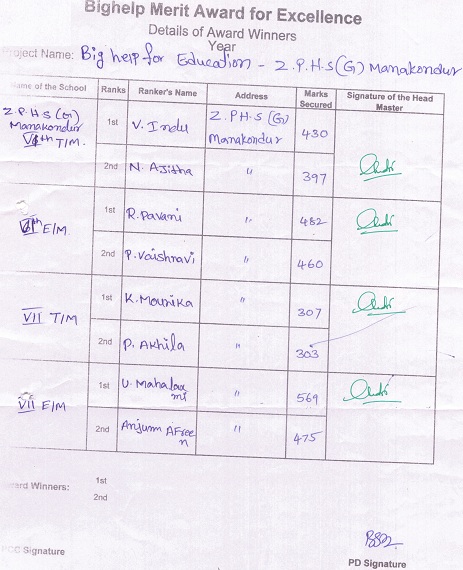 Bighelp Merit Award for Excellence
Details of Award Winners
Year
roject Name: Big help for Education - Z.P.H.S (G) Manakondur
ame of the School Ranks Ranker's Name Address Marks Secured Signature of the Head Master
Z.P.H.S (G) Manakondur VIth T/M. 1st V. Indu Z.P.H.S (G) Manakondur 430
2nd N. Ajitha " 397
VIth E/M 1st R. Pavani " 482
2nd P. Vaishnavi " 460
VII T/M 1st K. Mounika " 307
2nd P. Akhila " 303
VII E/M 1st U. Mahalaxmi " 569
2nd Anjum AFreen " 475
ard Winners: 1st
2nd
CC Signature
PD Signature